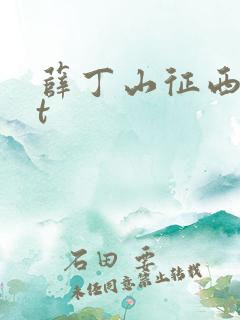 薛丁山征西
t
石田 要
未经同意禁止转载